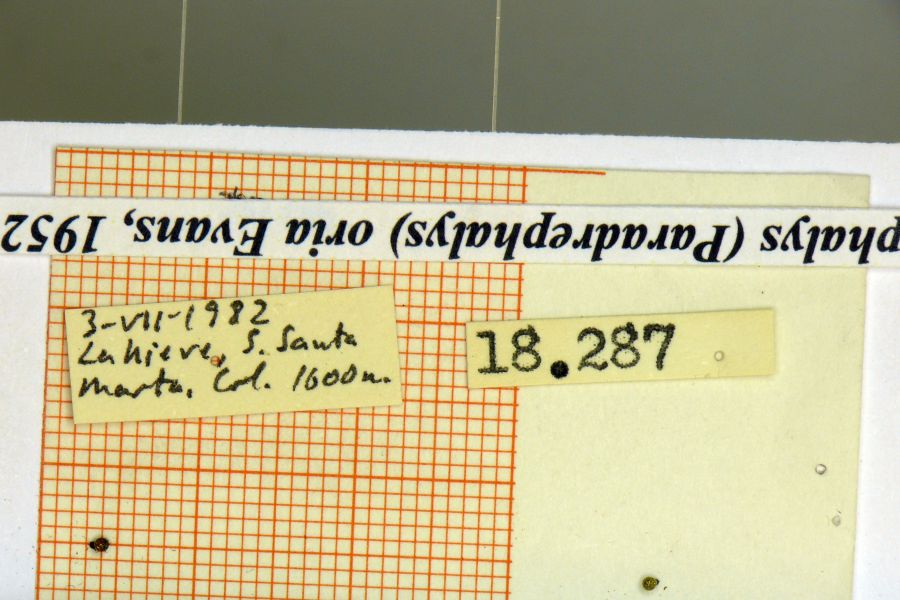 phalys (Paradrephalys) oria Evans, 1952
3-VII-1982
La Nieve, S. Santa
Marta. Col. 1600m.
18.287